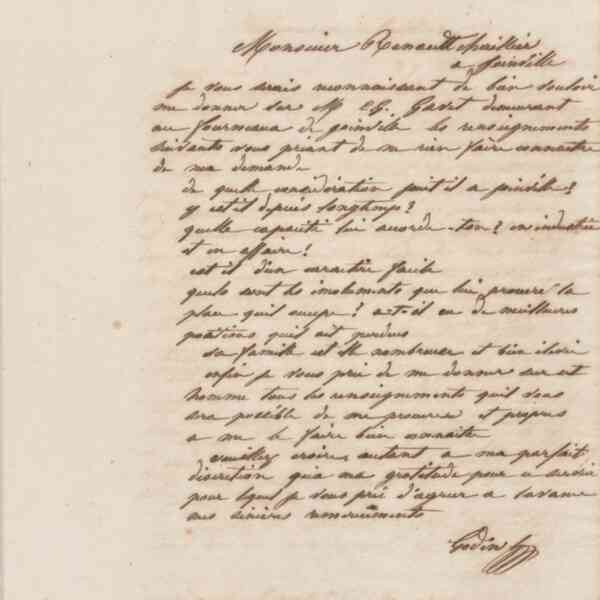 Monsieur Renault huillier
a Joinville
Je vous serais reconnaissant de bien vouloir
me donner sur Mr Ch. Gavet demeurant
au fourneaux de joinville les renseignements
suivants vous priant de ne rien faire connaitre
de ma demande
de quelle considération jouit il a joinville?
y est il depuis longtemps?
quelle capacité lui accorde-t'on? en industrie
et en affaire?
est il d'un caractère facile
quels sont les émoluments que lui procure la
place qu'il occupe? a-t-il eu de meilleures
positions qu'il ait perdues
sa famille est elle nombreuse et bien élevée
enfin je vous prie de me donner sur cet
homme tous les renseignements qu'il vous
sera possible de me procurer et propres
a me le faire bien connaitre
veuillez croire autant a ma parfait
discretion qu'a ma gratitude pour ce service
pour lequel je vous prie d'agréer a l'avance
mes sincères remerciements
Godin